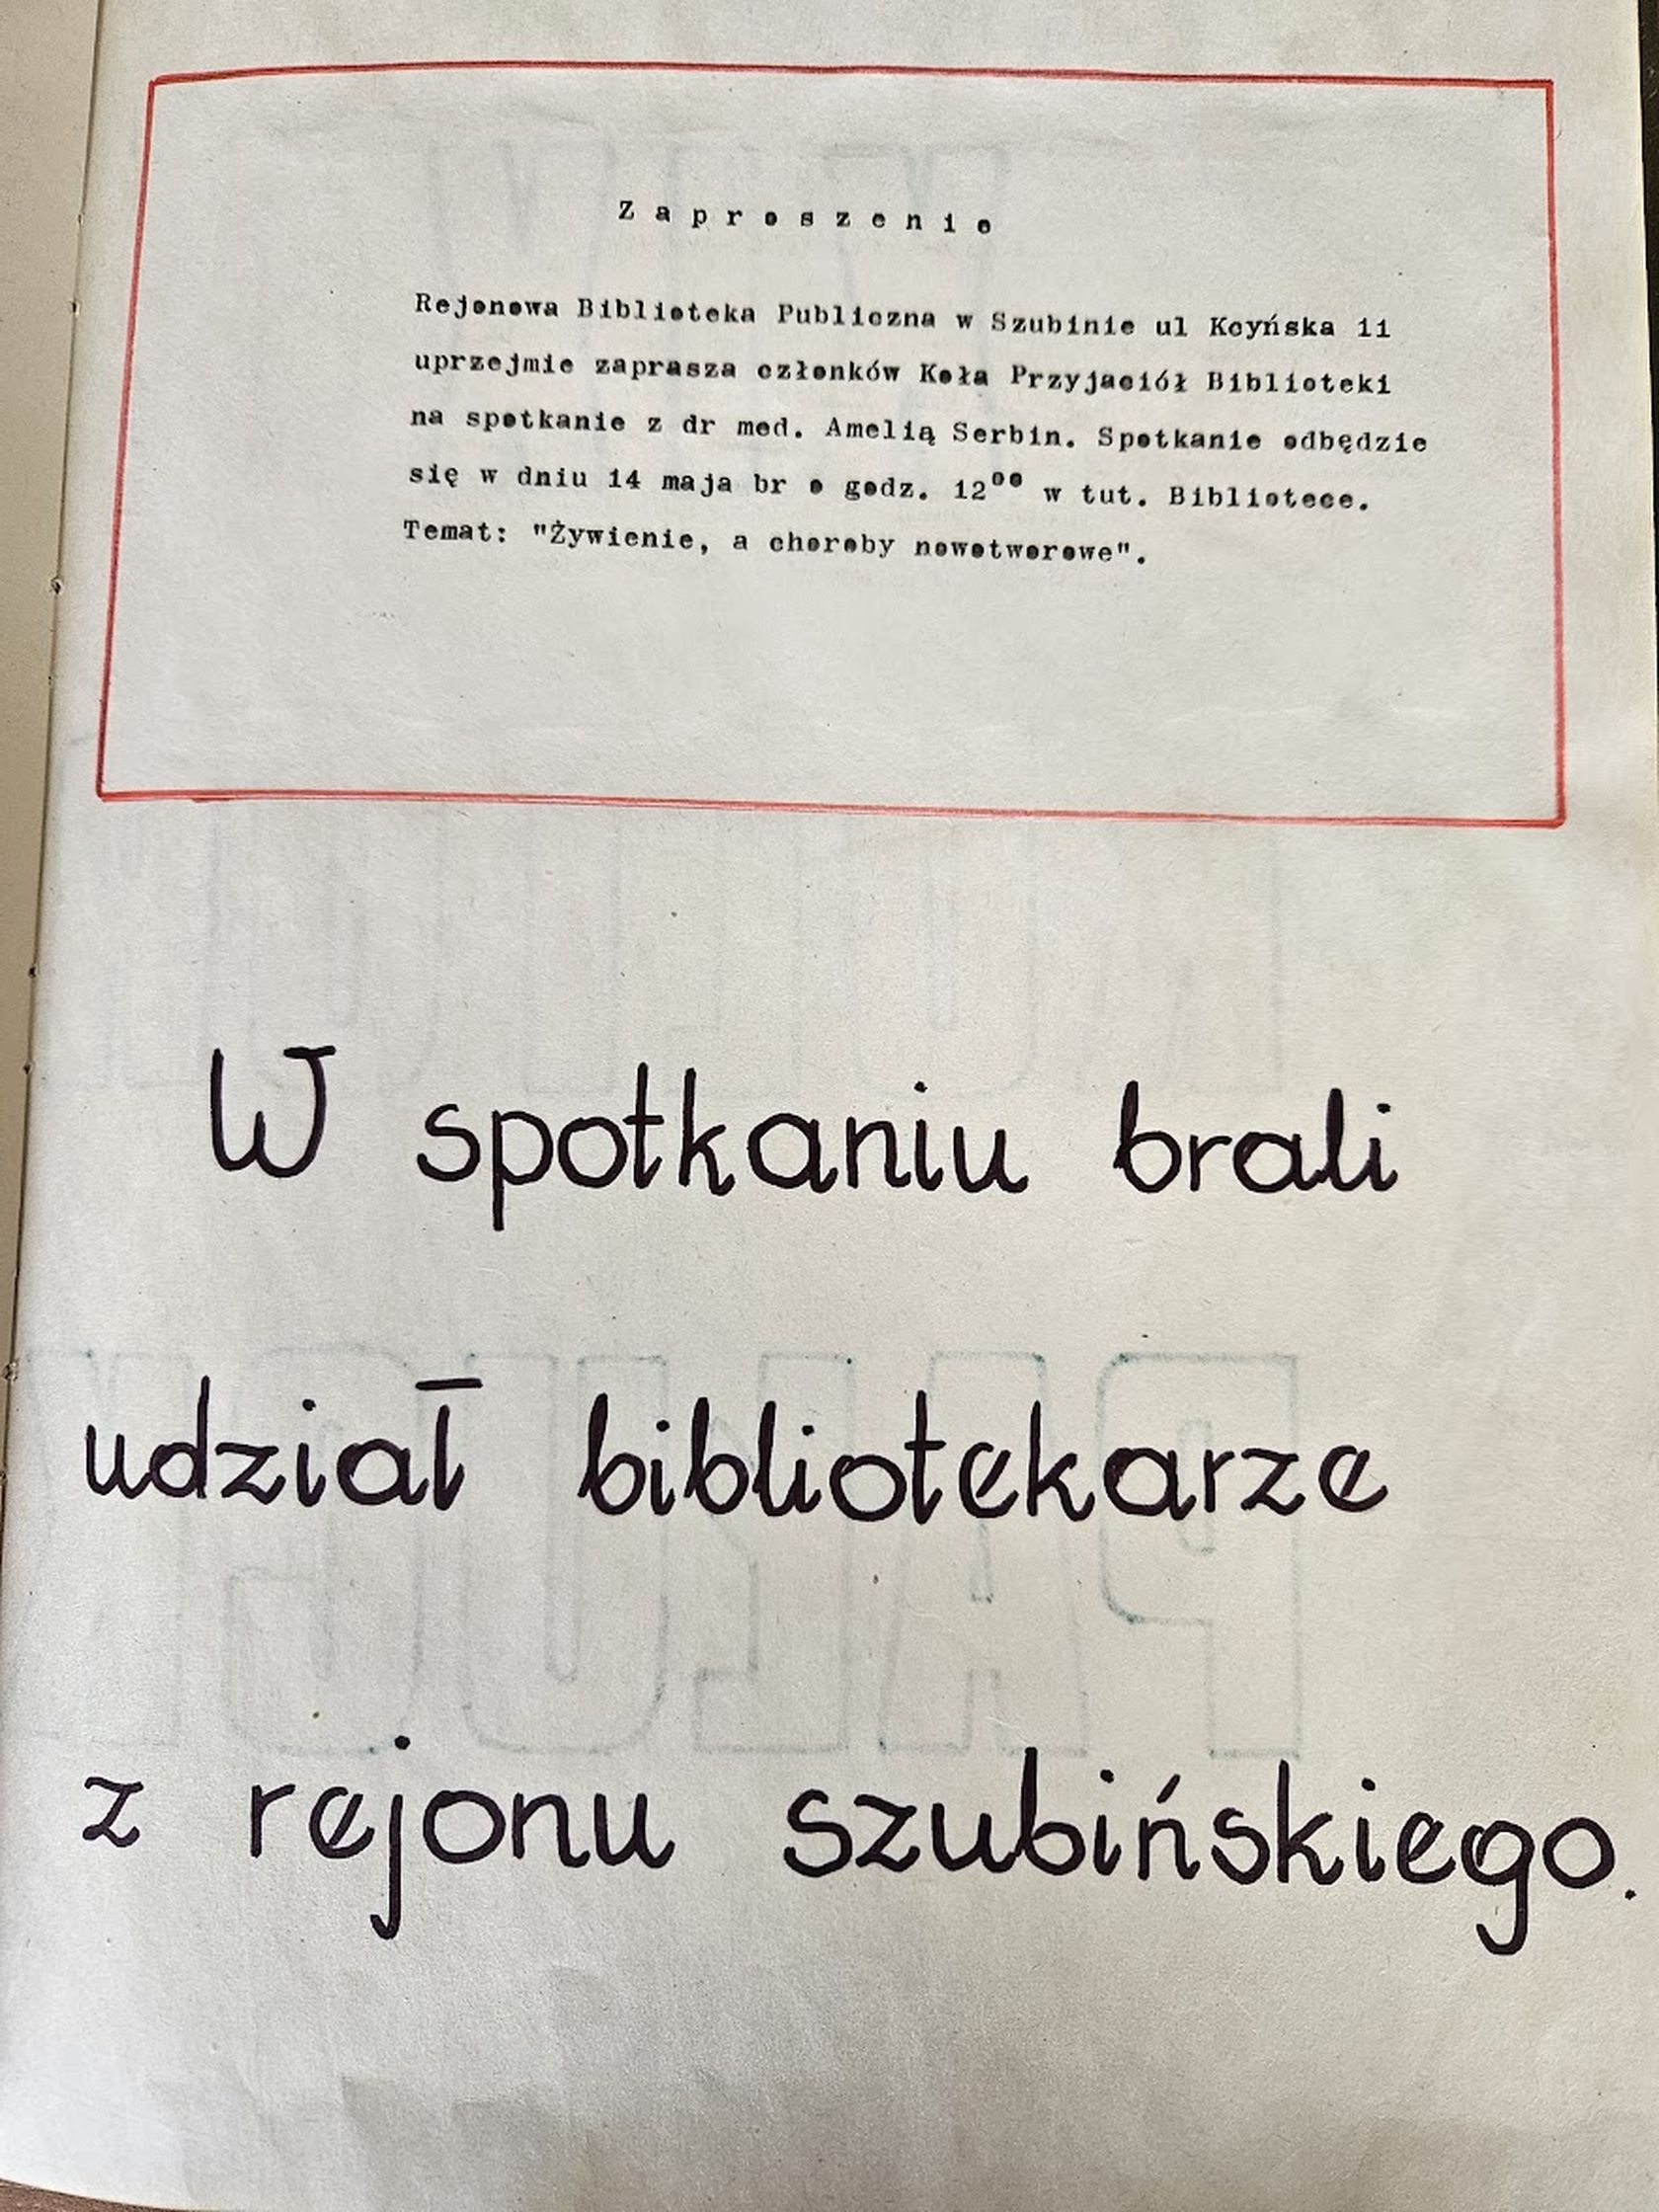 Z a p r o s z e n i e
Rejonowa Biblioteka Publiczna w Szubinie ul Kcyńska 11
uprzejmie zaprasza członków Koła Przyjaciół Biblioteki
na spotkanie z dr med. Amelią Serbin. Spotkanie odbędzie
się w dniu 14 maja br o godz. 12⁰⁰ w tut. Bibliotece.
Temat: "Żywienie, a choroby nowotworowe".
W spotkaniu brali
udział bibliotekarze
z rejonu szubińskiego.